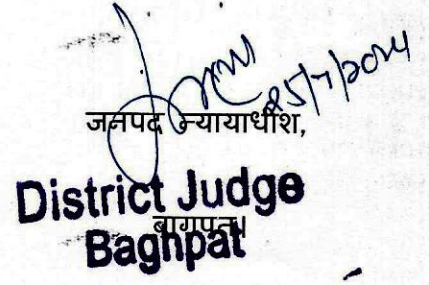 25/7/2024
जनपद न्यायाधीश,
District Judge
बागपत।
Baghpat